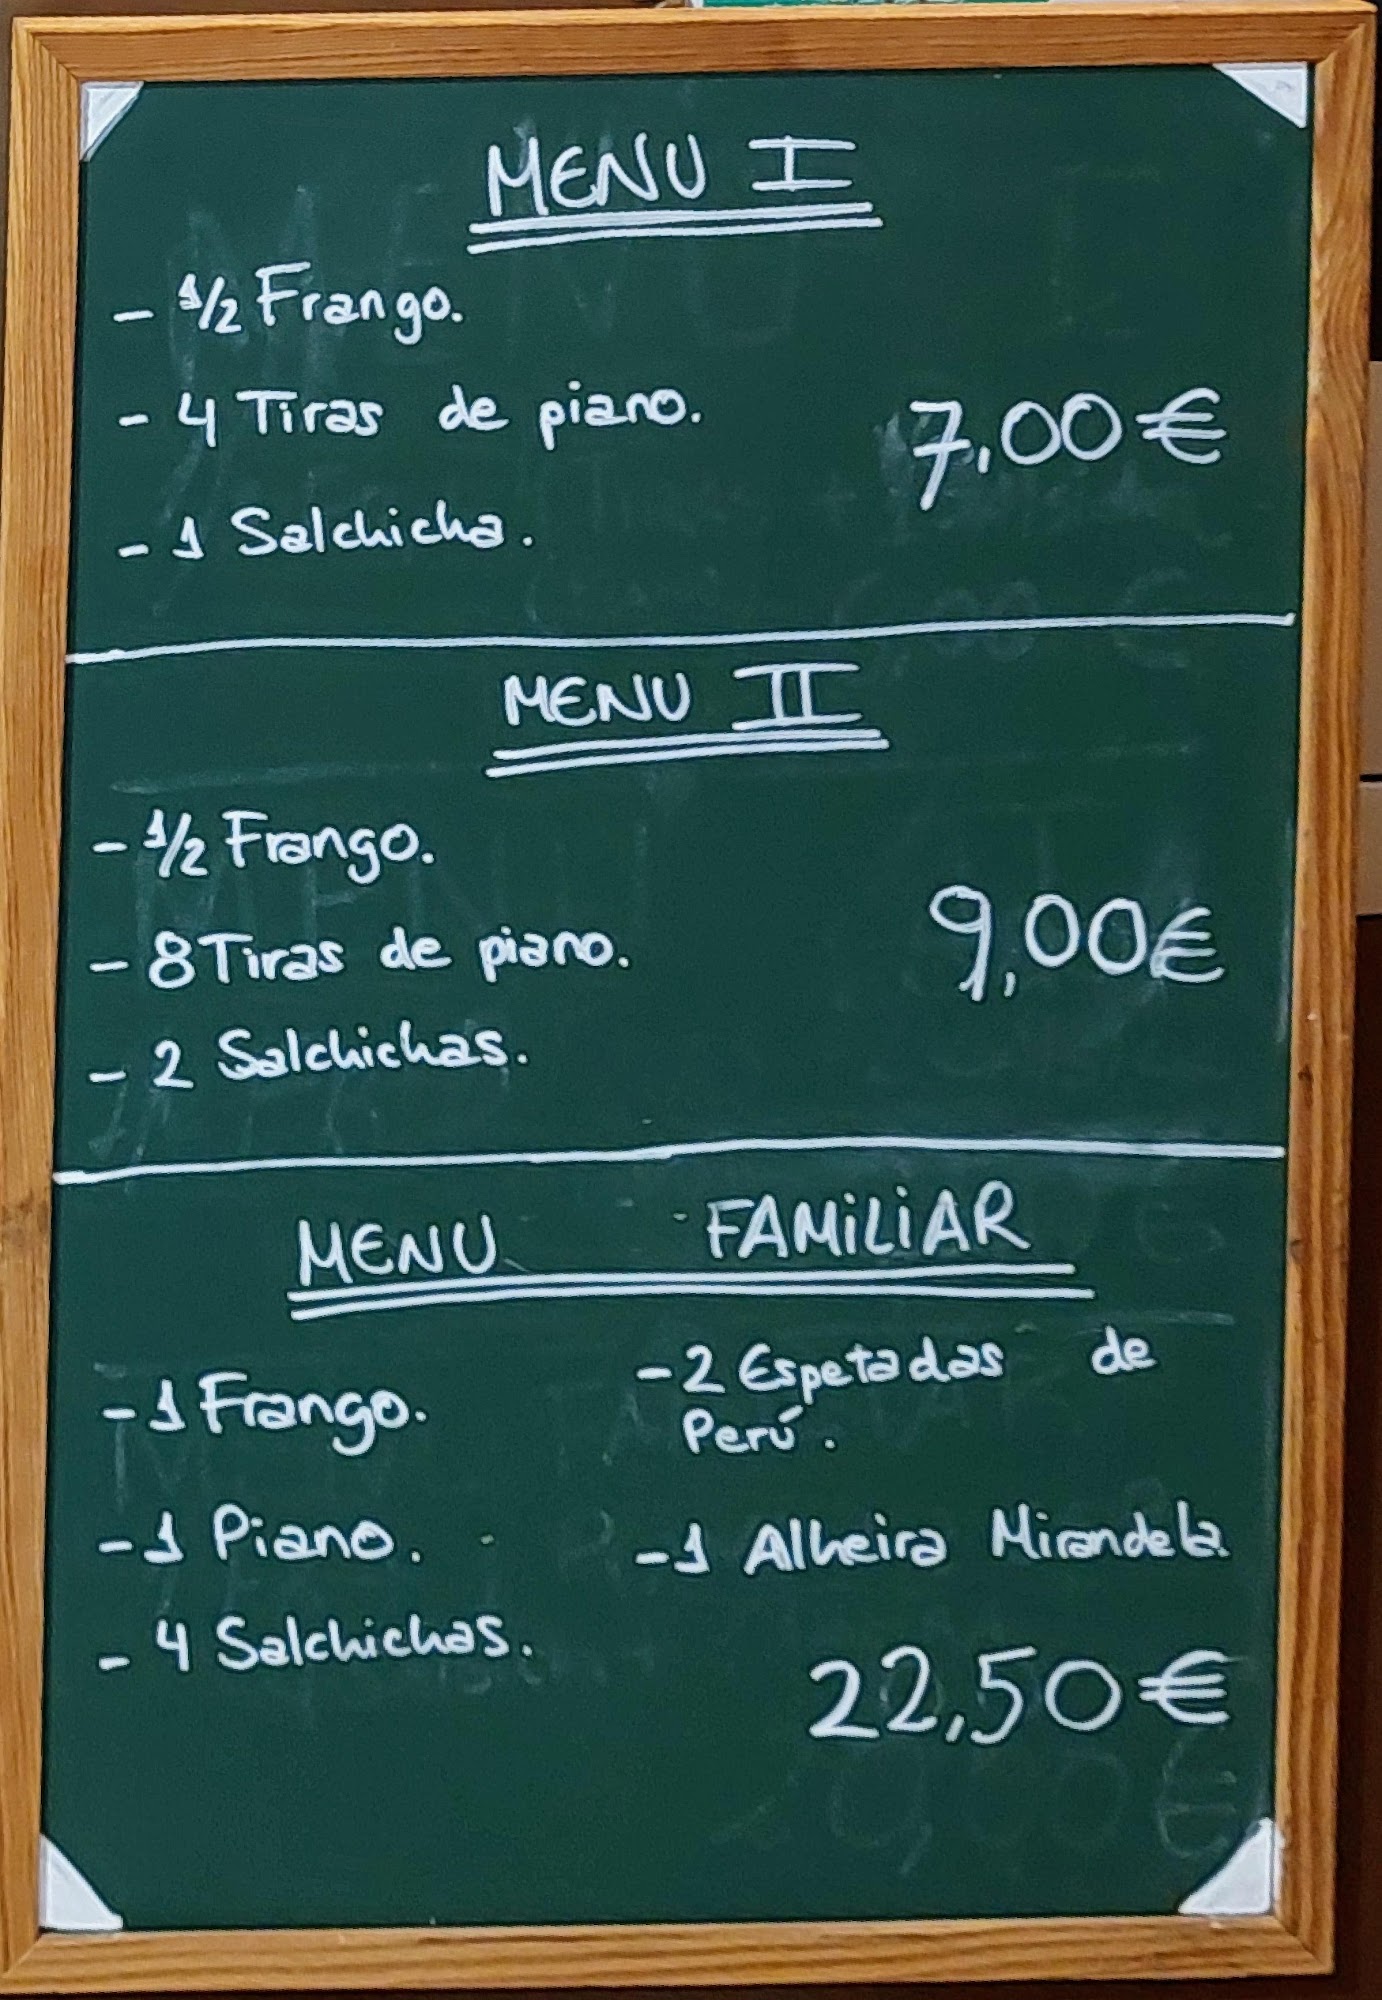 MENU I
- 1/2 Frango.
- 4 Tiras de piano.
7,00€
- 1 Salchicha.
MENU II
- 1/2 Frango.
- 8 Tiras de piano.
9,00€
- 2 Salchichas.
MENU FAMiLiAR
- 1 Frango.
- 1 Piano.
- 4 Salchichas.
- 2 Espetadas de
Perú.
- 1 Alheira Mirandela.
22,50€